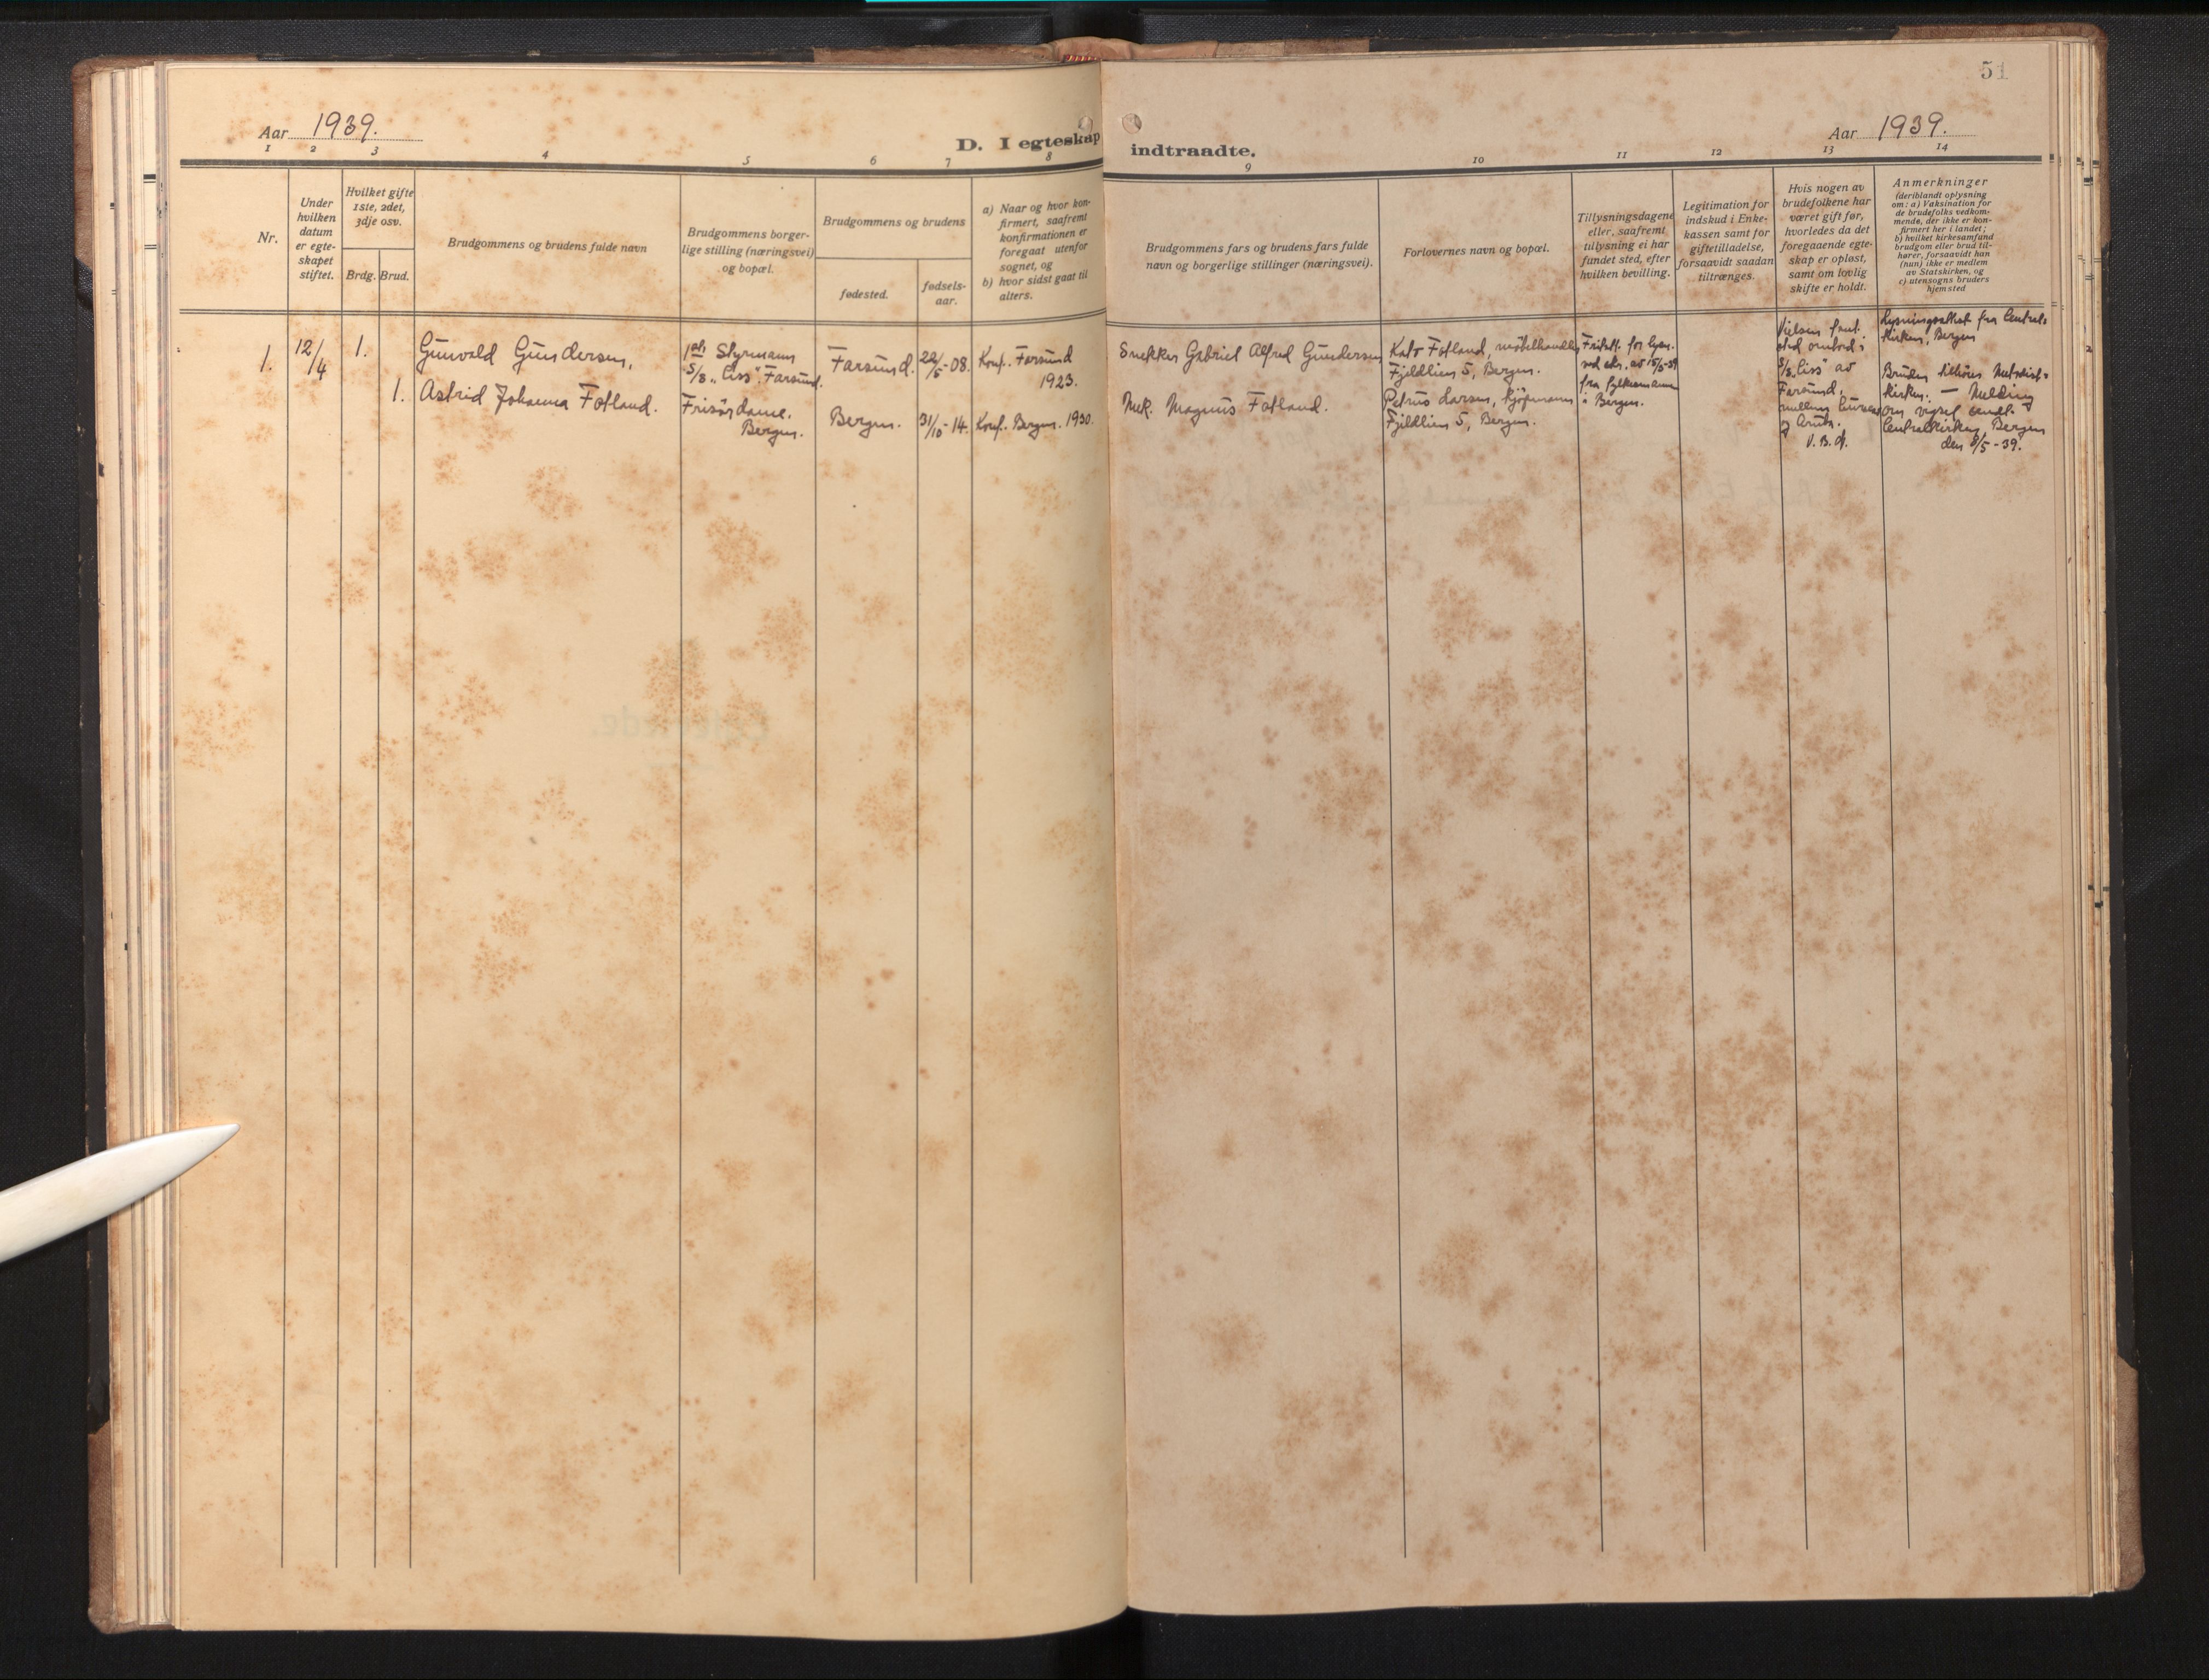 51
Aar 1939.
D. I egteskap
indtraadte.
Aar 1939.
1 2 3 4 5 6 7 8
9 10 11 12 13 14
Nr.
Under
hvilken
datum
er egte-
skapet
stiftet.
Hvilket gifte
1ste, 2det,
3dje osv.
Brdg. Brud.
Brudgommens og brudens fulde navn
Brudgommens borger-
lige stilling (næringsvei)
og bopæl.
Brudgommens og brudens
fødested.
fødsels-
aar.
a) Naar og hvor kon-
firmert, saafremt
konfirmationen er
foregaat utenfor
sognet, og
b) hvor sidst gaat til
alters.
Brudgommens fars og brudens fars fulde
navn og borgerlige stillinger (næringsvei).
Forlovernes navn og bopæl.
Tillysningsdagene
eller, saafremt
tillysning ei har
fundet sted, efter
hvilken bevilling.
Legitimation for
indskud i Enke-
kassen samt for
giftetilladelse,
forsaavidt saadan
tiltrænges.
Hvis nogen av
brudefolkene har
været gift før,
hvorledes da det
foregaaende egte-
skap er opløst,
samt om lovlig
skifte er holdt.
Anmerkninger
(deriblandt oplysning
om: a) Vaksination for
de brudefolks vedkom-
mende, der ikke er kon-
firmert her i landet;
b) hvilket kirkesamfund
brudgom eller brud til-
hører, forsaavidt han
(hun) ikke er medlem
av Statskirken, og
c) utensogns bruders
hjemsted
1.
12/4
1.
Gunvald Gundersen,
1ste Styrmann
S/S. "Ciss". Farsund.
Farsund.
22/5-08.
Konf. Farsund
1923.
1.
Astrid Johanna Fotland.
Frisørdame.
Bergen.
Bergen.
31/10-14.
Konf. Bergen. 1930.
Snekker Gabriel Alfred Gundersen
Mek. Magnus Fotland.
Kato Fotland, møbelhandler
Fjeldlien 5, Bergen.
Petrus Larsen, kjøpmann
Fjeldlien 5, Bergen.
Fritatt for lysn.
ved skr. av 15/3-39
fra fylkesmann
i Bergen.
Vielsen funt
sted ombord i
S/S "Ciss" av
Farsund,
mellem
og
V. B. d.
Lysningsattest fra Central-
kirken, Bergen
Bruden tilhører Metodist-
kirken. — Melding
om vigsel sendt
Centralkirken, Bergen
den 8/5-39.